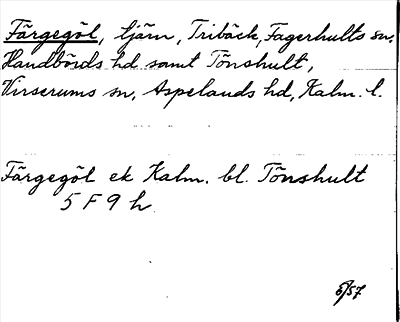 Färgegöl, tjärn, Tribäck, Fagerhults sn,
Handbörds hd samt Tönshult,
Virserums sn, Aspelands hd, Kalm. l.
Färgegöl ek Kalm. bl. Tönshult
5 F 9 h